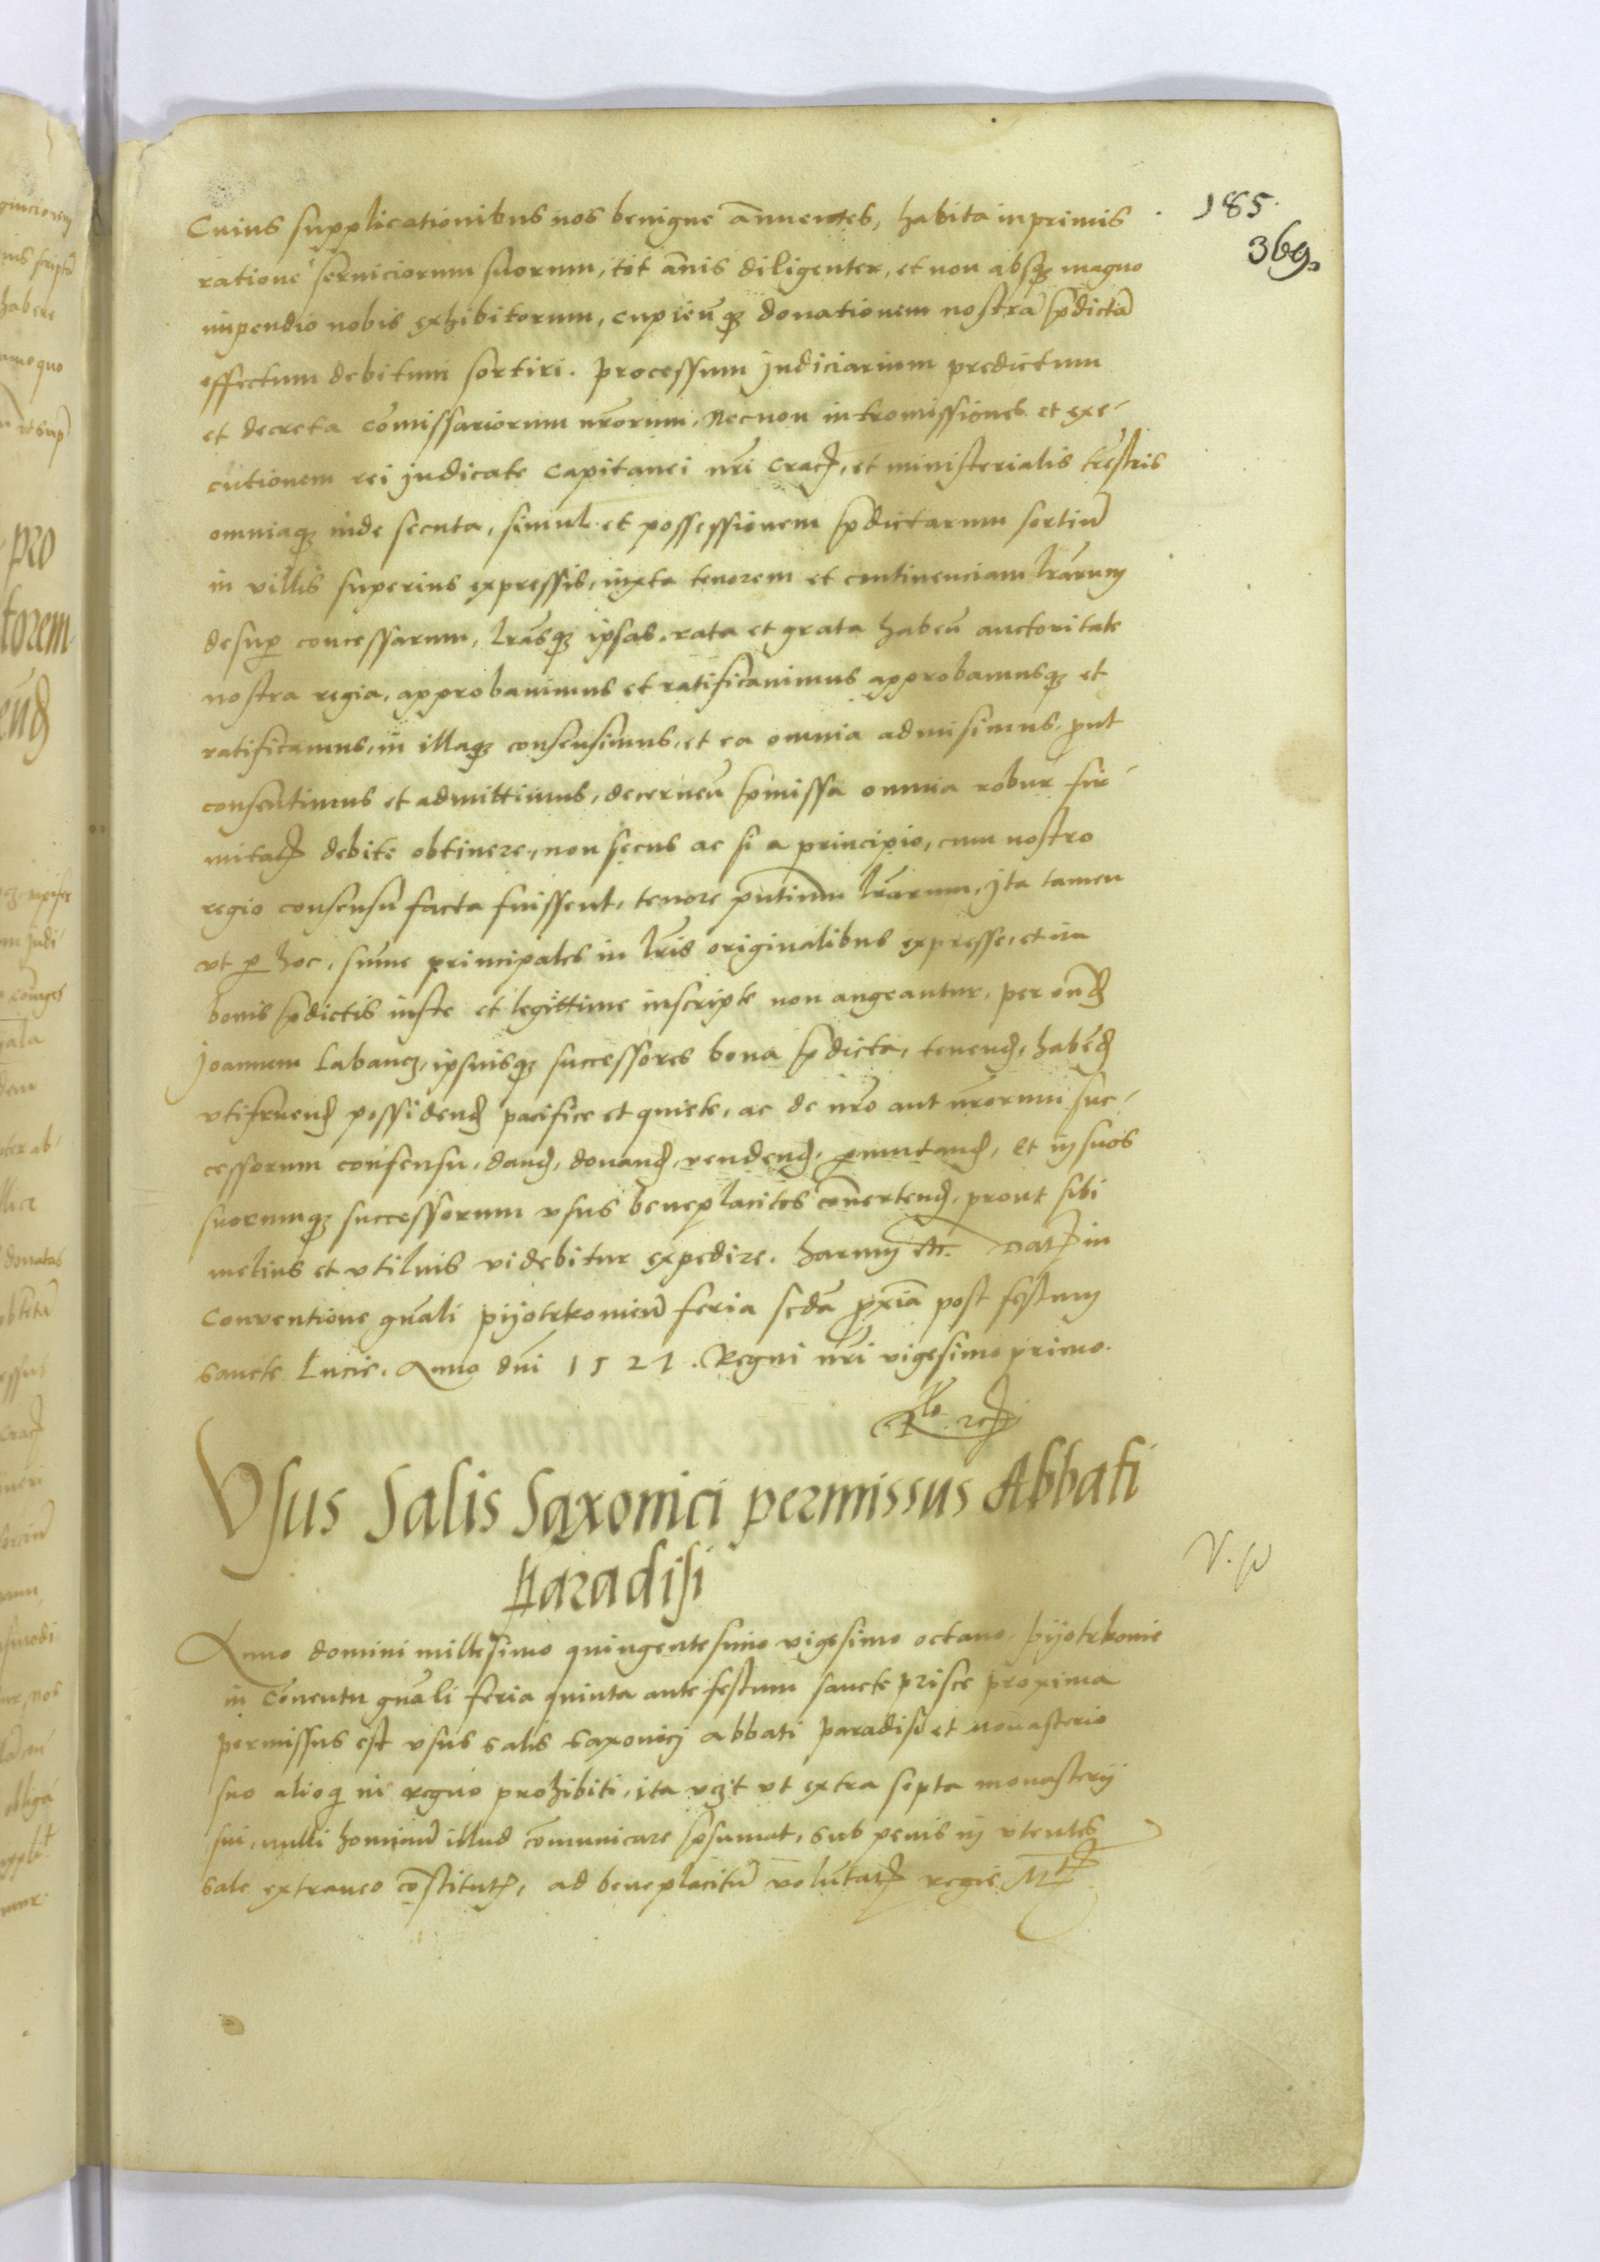 185.
369.
Cuius supplicationibus nos benigne anuentes, habita inprimis
ratione serviciorum suorum, tot annis diligenter, et non absq3 magno
impendio nobis exhibitorum, cupien̄q3 donationem nostrā p̄dictā
effectum debitum sortiri. Processum judiciarium predictum
et decreta com̄issariorum nr̄orum, Necnon intromissiones et exe-
cutionem rei judicate Capitanei nr̄i Crac̄, et ministerialis tr̄estris
omniaq3 inde secuta, simul et possessionem p̄dictarum sortiū
in villis superius expressis, iuxta tenorem et continenciam lr̄arum
desup̄ concessarum, lr̄asq3 ipsas, rata et grata haben̄ auctoritate
nostra regia, approbavimus et ratificavimus approbamusq3 et
ratificamus, in illaq3 consensimus, et ea omnia admisimus, put
consentimus et admittimus, decernen̄ p̄missa omnia robur fir-
mitat̄ debite obtinere, non secus ac si a principio, cum nostro
regio consensu facta fuissent, tenore p̄ntium lr̄arum, ita tamen
vt p hoc, sum̄e principales in lr̄is originalibus expresse, et in
bonis p̄dictis iuste et legittime inscripte non augeantur, per eund̄
Joannem Labancz, ipsiusq3 successores bona p̄dicta, tenend̄, habēd̄
vtifruend̄ possidend̄ pacifice et quiete, ac de nr̄o aut nr̄orum suc-
cessorum consensu, dand̄, donand̄, vendend̄, p̄mutand̄, et in suos
suorumq3 successorum vsus beneplacitos cōvertend̄, prout sibi
melius et vtilius videbitur expedire. harum etc. Dat̄ in
Conventione gn̄ali pijotrkovien̄ feria sc̄da px̄ia post festum
sancte Lucie. Anno dn̄i 1527. Regni nr̄i vigesimo primo.
Vsus Salis Saxonici permissus Abbati
Paradisi
Anno domini millesimo quingentesimo vigesimo octavo, pijotrkovie
in Cōventu gn̄ali feria quinta ante festum sancte prisce proxima
permissus est vsus salis saxonicj abbati paradisi et monasterio
suo alioq̄ in regno prohibiti, ita vz̄t vt extra septa monasterij
sui, nulli hominū illud com̄unicare p̄sumat, sub penis in vtentes
sale extraneo cōstitut̄, ad beneplacitū volūtat̄ regie Mt̄